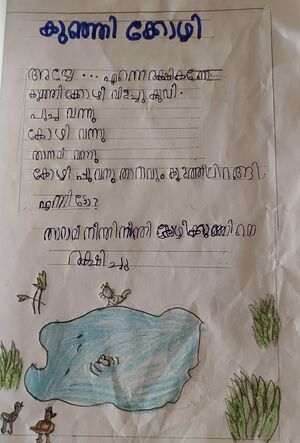 കുഞ്ഞി ക്കോഴി
അയ്യോ ... എന്നെ രക്ഷിക്കണേ.......
കുഞ്ഞിക്കോഴി വിളിച്ചു കൂവി.
പൂച്ച വന്നു
കോഴി വന്നു
താറാവ് വന്നു
കോഴി പ്പൂവനും താറാവും കുളത്തിലിറങ്ങി.
എന്നിട്ടോ?
താറാവ് നീന്തിനീന്തി കോഴിക്കുഞ്ഞിനെ
രക്ഷിച്ചു